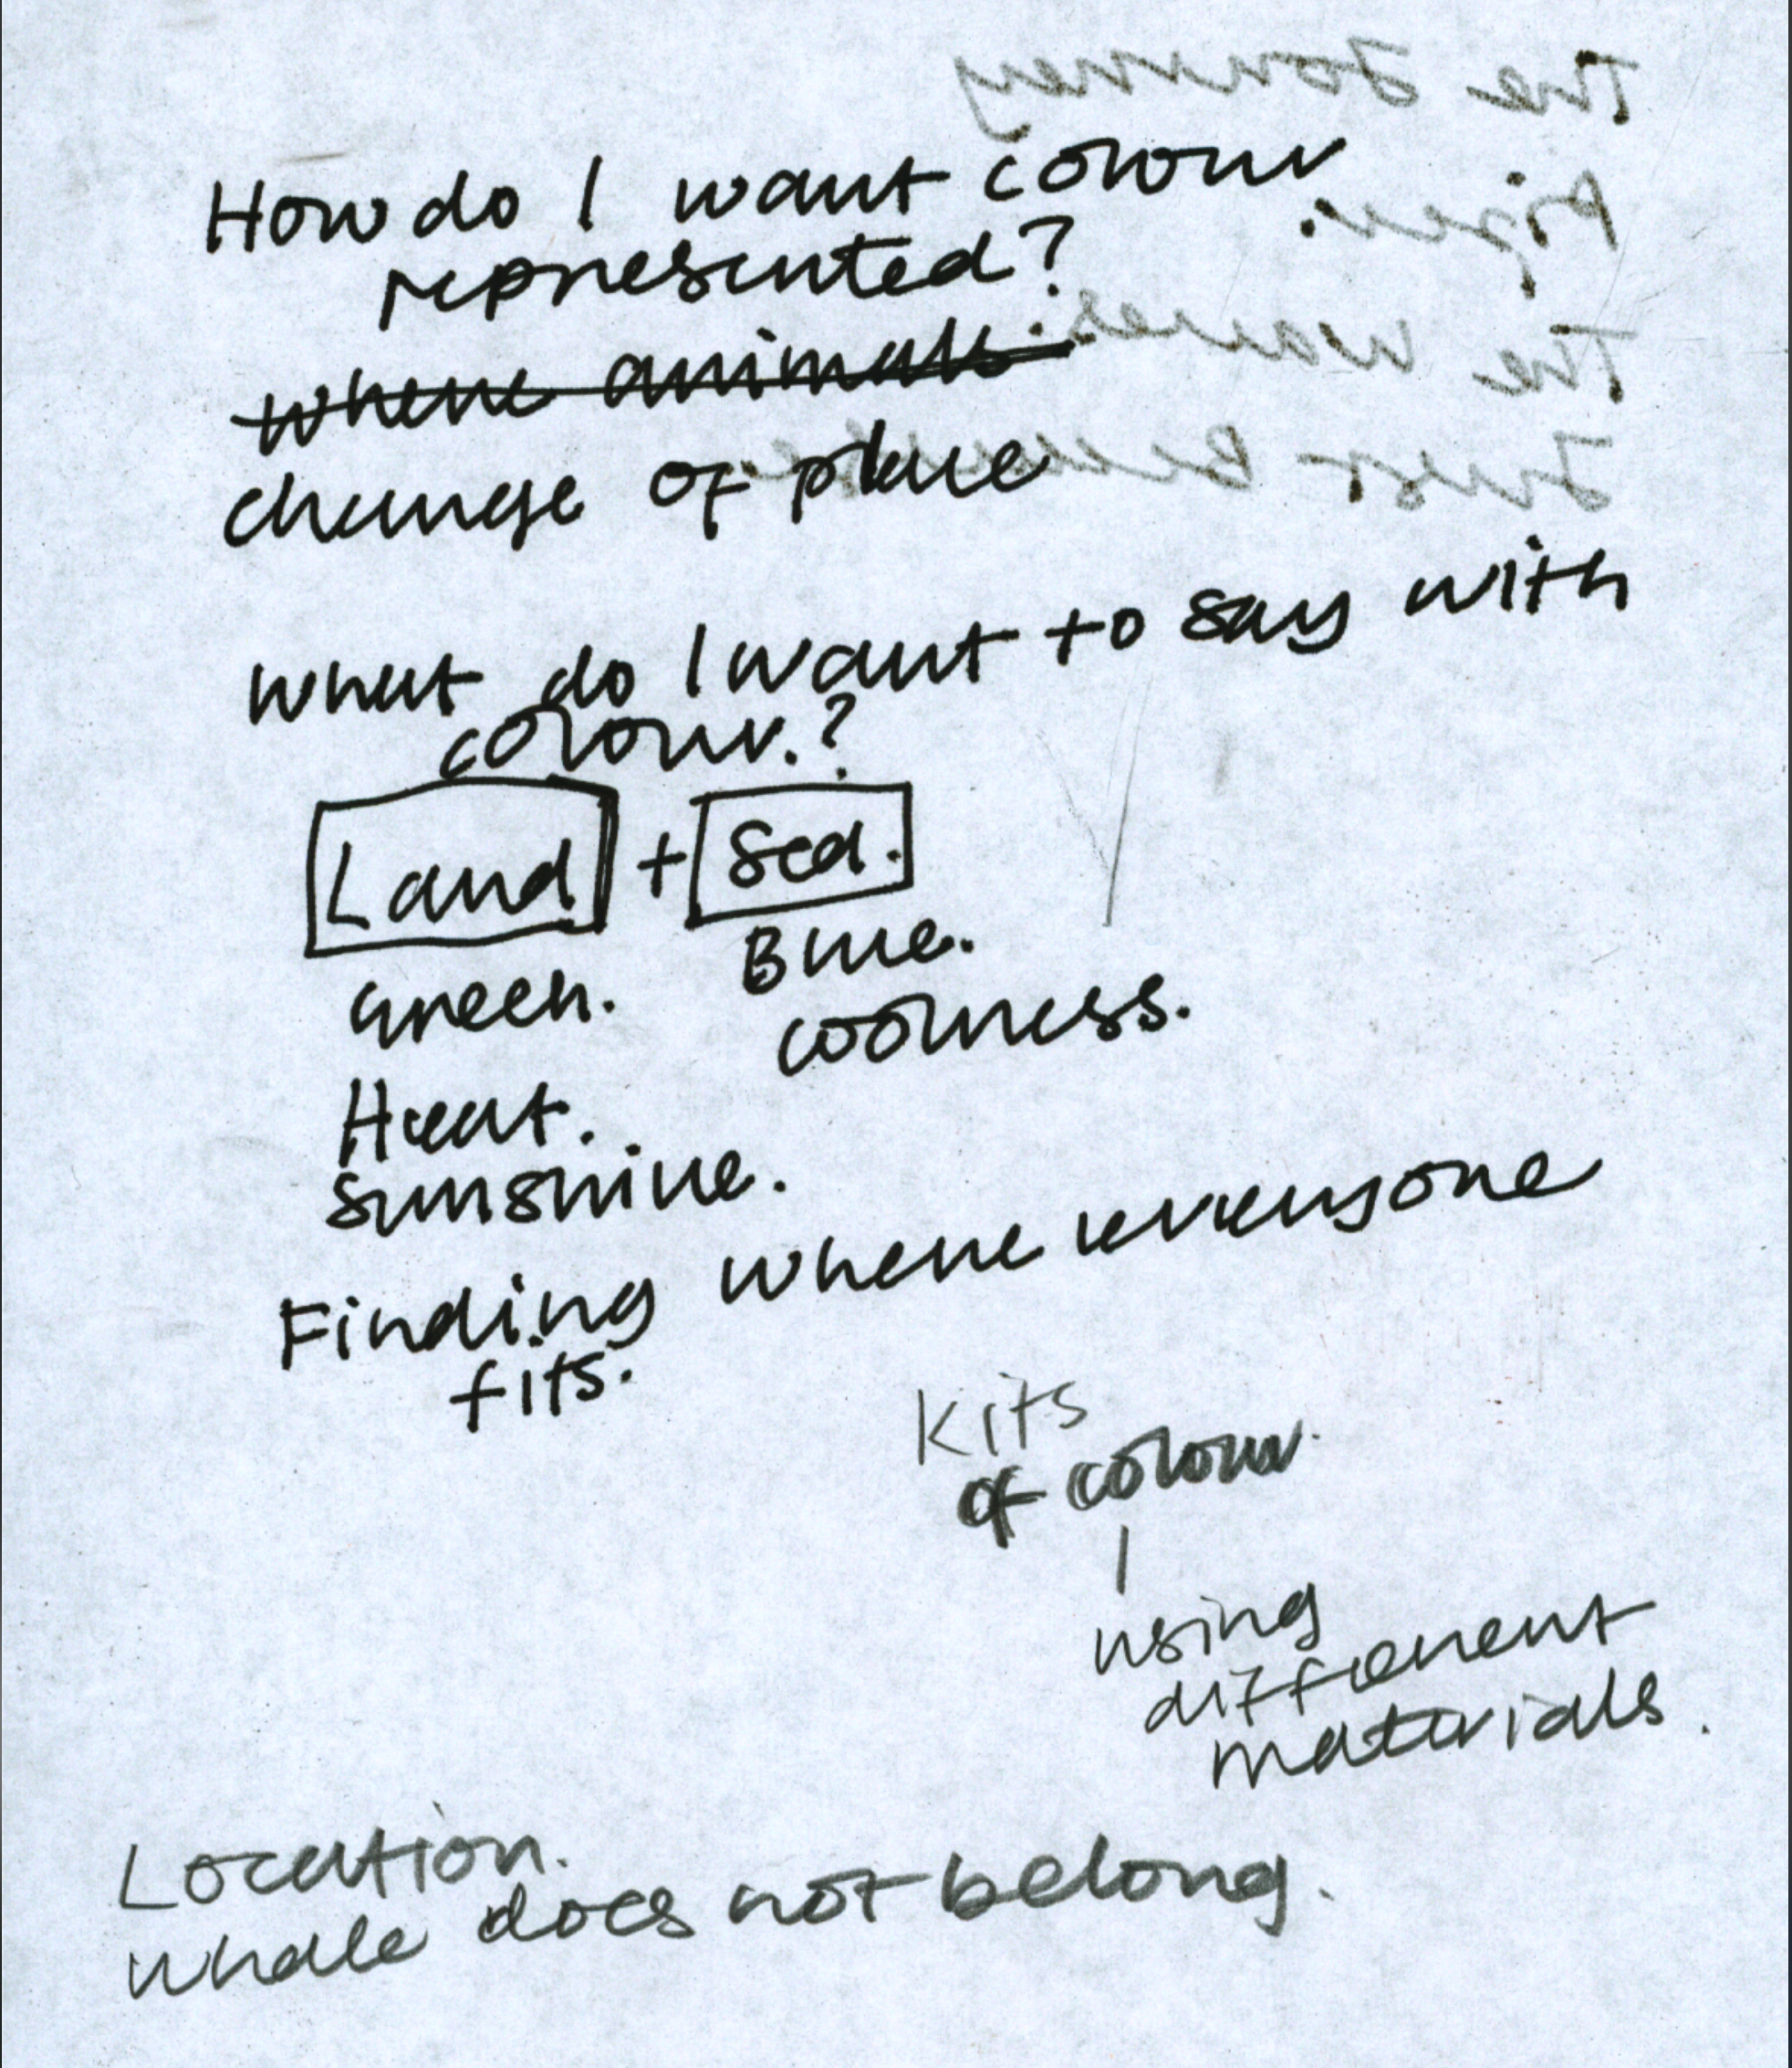 The Journey
How do I want colour
represented?
where animals
change of place
The wales.
what do I want to say with
colour.?
Land + Sea.
Green. Blue.
coolness.
Heat.
sunshine.
Finding where everyone
fits.
Kits
of colour.
using
different
materials.
Location.
whale does not belong.